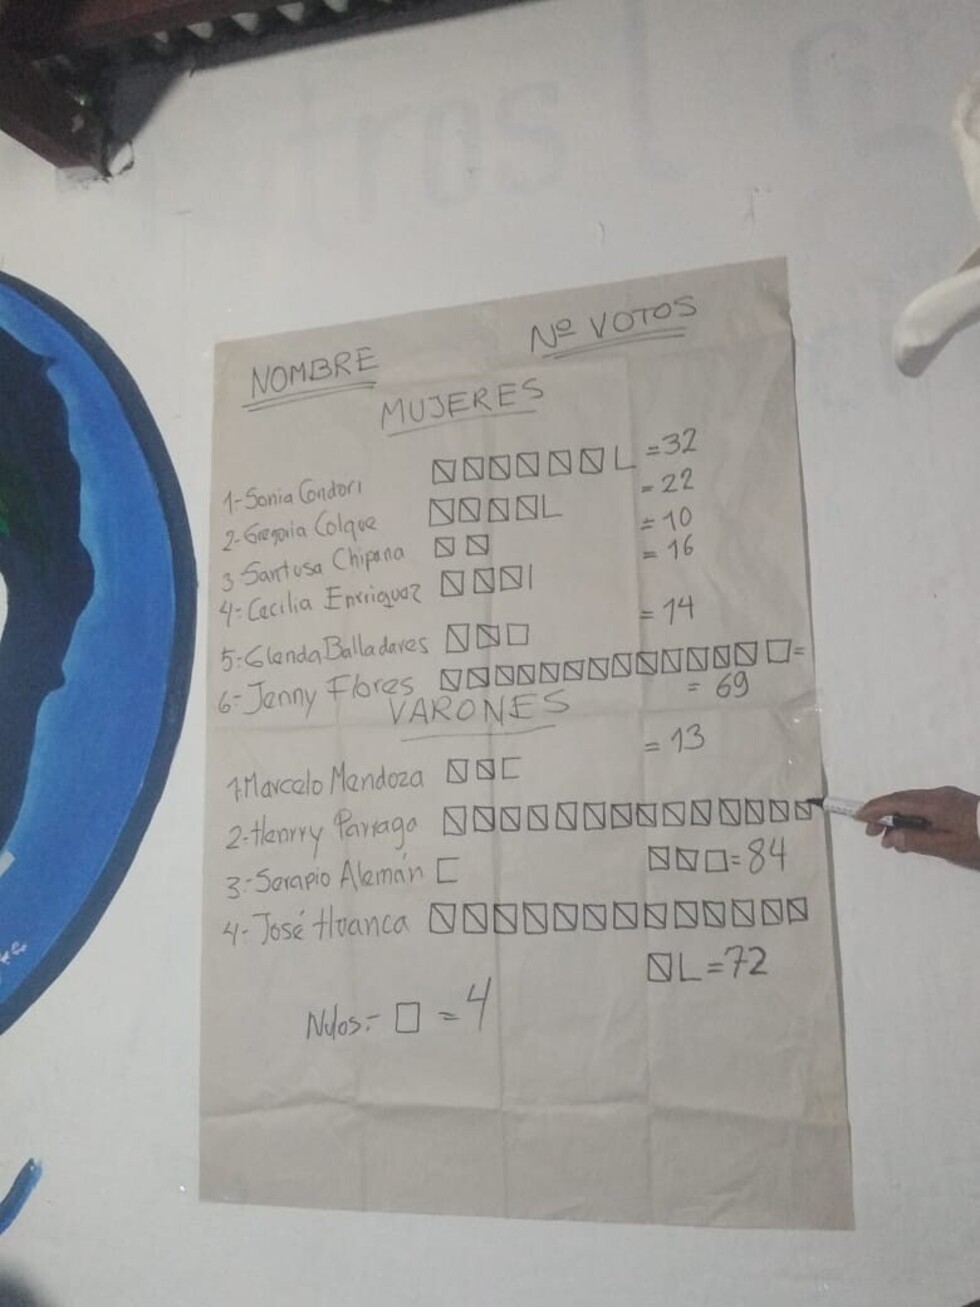 NOMBRE Nº VOTOS
MUJERES
1-Sonia Condori =32
2-Gregoria Colque = 22
3 Santusa Chipana = 10
4-Cecilia Enrriquez = 16
5-Glenda Balladares = 14
6-Jenny Flores =
= 69
VARONES
1.Marcelo Mendoza = 13
2-Henrry Parraga
=84
3-Serapio Alemán
4-José Huanca
=72
Nulos.- =4